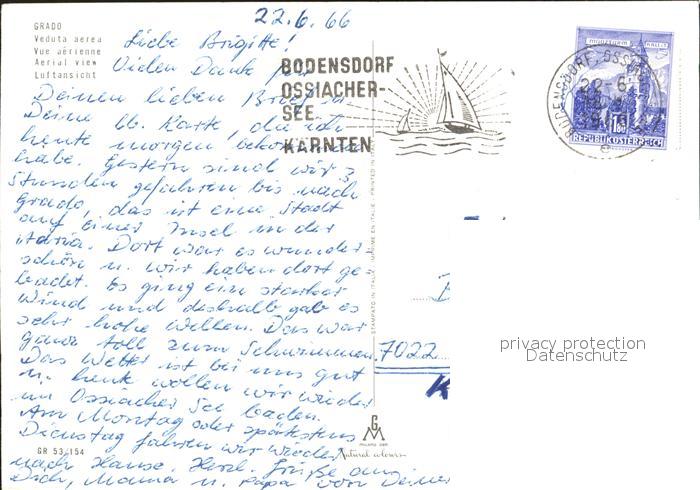 22.6.66
GRADO
Veduta aerea
Vue aérienne
Aerial view
Luftansicht
Liebe Brigitte!
Vielen Dank für
Deinen lieben Brief u.
Deine lb. Karte, die ich
heute morgen bekommen
habe. Gestern sind wir 3
Stunden gefahren bis nach
Grado, das ist eine Stadt
auf einer Insel in der
Adria. Dort war es wunder-
schön u. wir haben dort ge-
badet. Es ging ein starker
Wind und deshalb gab es
sehr hohe Wellen. Das war
ganz toll zum Schwimmen.
Das Wetter ist bei uns gut
u. heute wollen wir wieder
im Ossiacher See baden.
Am Montag oder spätestens
Dienstag fahren wir wieder
nach Hause. Herzl. Grüße an
Dich, Mama u. Papa von Deiner
GR 53/154
BODENSDORF
OSSIACHER-
SEE
KÄRNTEN
BODENSDORF-OSSIACH
22.6.
MÜNZTURM HALL I.T.
1.80
REPUBLIK ÖSTERREICH
STAMPATO IN ITALIE - IMPRIMÉ EN ITALIE - PRINTED IN
7022
privacy protection
Datenschutz
GM
MILANO
Natural colours